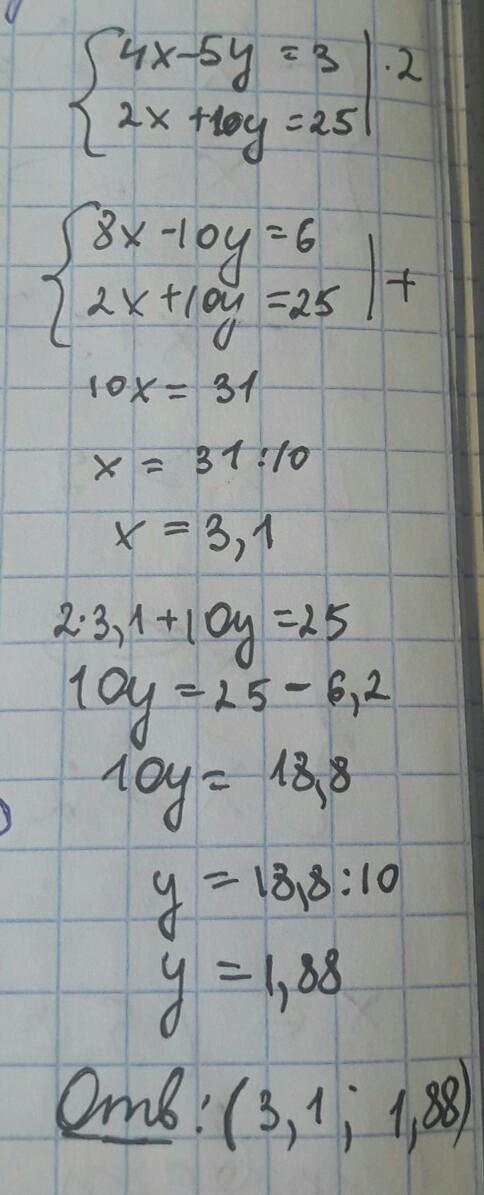 4x-5y = 3 | ·2
2x+10y = 25
8x-10y = 6
2x+10y = 25 | +
10x = 31
x = 31:10
x = 3,1
2·3,1+10y = 25
10y = 25 - 6,2
10y = 18,8
y = 18,8:10
y = 1,88
Отв: (3,1; 1,88)